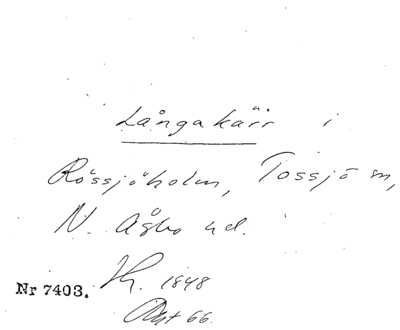 Långakärr i
Rössjöholm, Tossjö sn,
N. Åsbo hd.
1848
Nr 7403.
66.